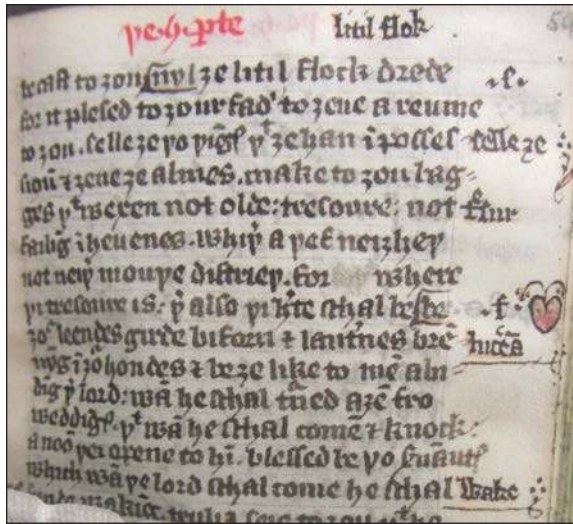 þe·h·ꝑte litil flok 59
be cast to ȝou / nyl ȝe litil flock drede ·e·
for it plesed to ȝour fad' to ȝeue a reume
to ȝou . selle ȝe þo þīgꝭ þᵗ ȝe han ī posses selle ȝe
sioū ⁊ ȝeue ȝe almes . make to ȝou bag-
ges þᵗ wexen not olde: tresoure: not
failīg ī heuenes . whiþ' a þef neiȝheþ
not neiþ' mouȝþe distrieþ . for where
þi tresoure is: þ' also þi h'te schal be ste ·f·
ȝoʳ leendes girde biforn ⁊ lant'nes brē lucea
nȳg ī ȝoʳ hondes ⁊ be ȝe like to mē abi
dīg þ' lord: wā he schal t'ned aȝē fro
weddīgꝭ . þᵗ wā he schal come ⁊ knock:
anoō þei opene to hī . blessed be þo s'uaūtꝭ
which wā þe lord schal come he schal wake